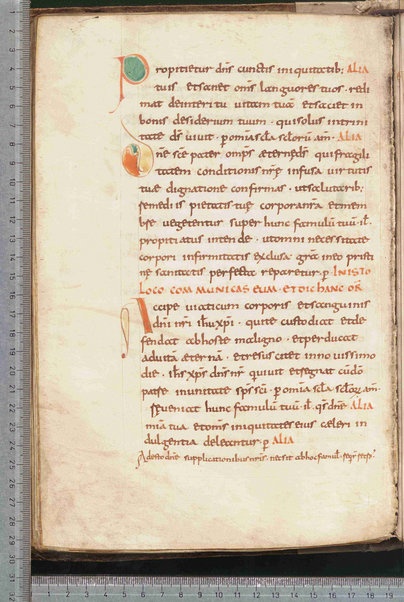 Propitietur dñs cunctis iniquitatib; ALIA
tuis et sanet om̄s languores tuos · redi
mat de interitu uitam tuā et saciet in
bonis desiderium tuum · qui solus in trini
tate ds̄ uiuit · p omia scla sclorū am̄ · ALIA
Dn̄e sc̄e pater omp̄s aeterne ds̄ qui fragili
tatem conditionis nr̄ę infusa uirtutis
tuę dignatione confirmas · ut salutarib;
remediis pietatis tuę corpora nr̄a et mem
bra uegetentur super hunc famulū tuū · ił ·
propitiatus intende · ut omni necessitate
corpori infirmitatis exclusa · gratia in eo pristi
nę sanitatis perfecta reparetur · p̄ IN ISTO
LOCO COMMUNICAS EUM · ET DIC HANC OR̄
Accipe uiaticum corporis et sanguinis
dn̄i nr̄i ihu xp̄i · qui te custodiat et de
fendat ab hoste maligno · et perducat
ad uitā aeternā · et resuscitet in nouissimo
die · ihs xp̄s dn̄s nr̄ qui uiuit et regnat cū dō
patre in unitate sp̄s sc̄i · p omia scla scloꝝ am̄ ·
Subueniat hunc famulum tuū · ił · qs dn̄e ALIA
mīa tua et omīs iniquitates eius celeri in
dulgentia deleantur · p̄ ALIA
Adesto dn̄e supplicationibus nr̄is · nec sit ab hoc famul̄ ·